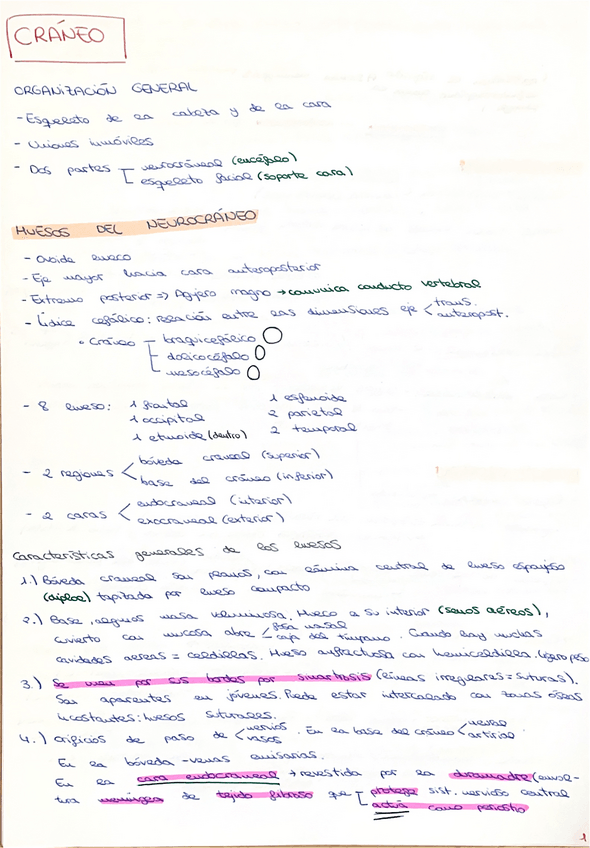 CRÁNEO
ORGANIZACIÓN GENERAL
- Esqueleto de la cabeza y de la cara
- Uniones inmóviles
- Dos partes neurocráneal (encéfalo)
esqueleto facial (soporte cara)
HUESOS DEL NEUROCRÁNEO
- Ovoide hueco
- Eje mayor hacia cara anteroposterior
- Extremo posterior => Agujero magno → comunica conducto vertebral
- Índice cefálico: relación entre las dimensiones eje < trans.
anteropost.
• Cráneo braquicefálico
dolicocéfalo
mesocéfalo
- 8 hueso: 1 frontal 1 esfenoide
1 occipital 2 parietal
1 etmoide (dentro) 2 temporal
- 2 regiones < bóveda craneal (superior)
base del cráneo (inferior)
- 2 caras < endocraneal (interior)
exocraneal (exterior)
Características generales de los huesos
1.) Bóveda craneal son planos, con lámina central de hueso esponjoso
(diploe) tapizada por hueso compacto
2.) Base, algunos masa voluminosa. Hueco a su interior (senos aéreos),
cubierto con mucosa abre < fosa nasal
caja del tímpano. Cuando hay muchas
cavidades aereas = celdillas. Hueso anfractuosa con hemiceldilla. Ligero peso
3.) Se unen por sus bordes por sinartrosis (líneas irregulares = suturas).
Son aparentes en jóvenes. Puede estar intercalado con zonas óseas
inconstantes: huesos suturales.
4.) Orificios de paso de < nervios
vasos. En la base del cráneo <
arterial
En la bóveda - venas emisarias.
En la cara endocraneal → revestida por la duramadre (envol-
tura meníngea de tejido fibroso que protege sist. nervioso central
actúa como periostio
1